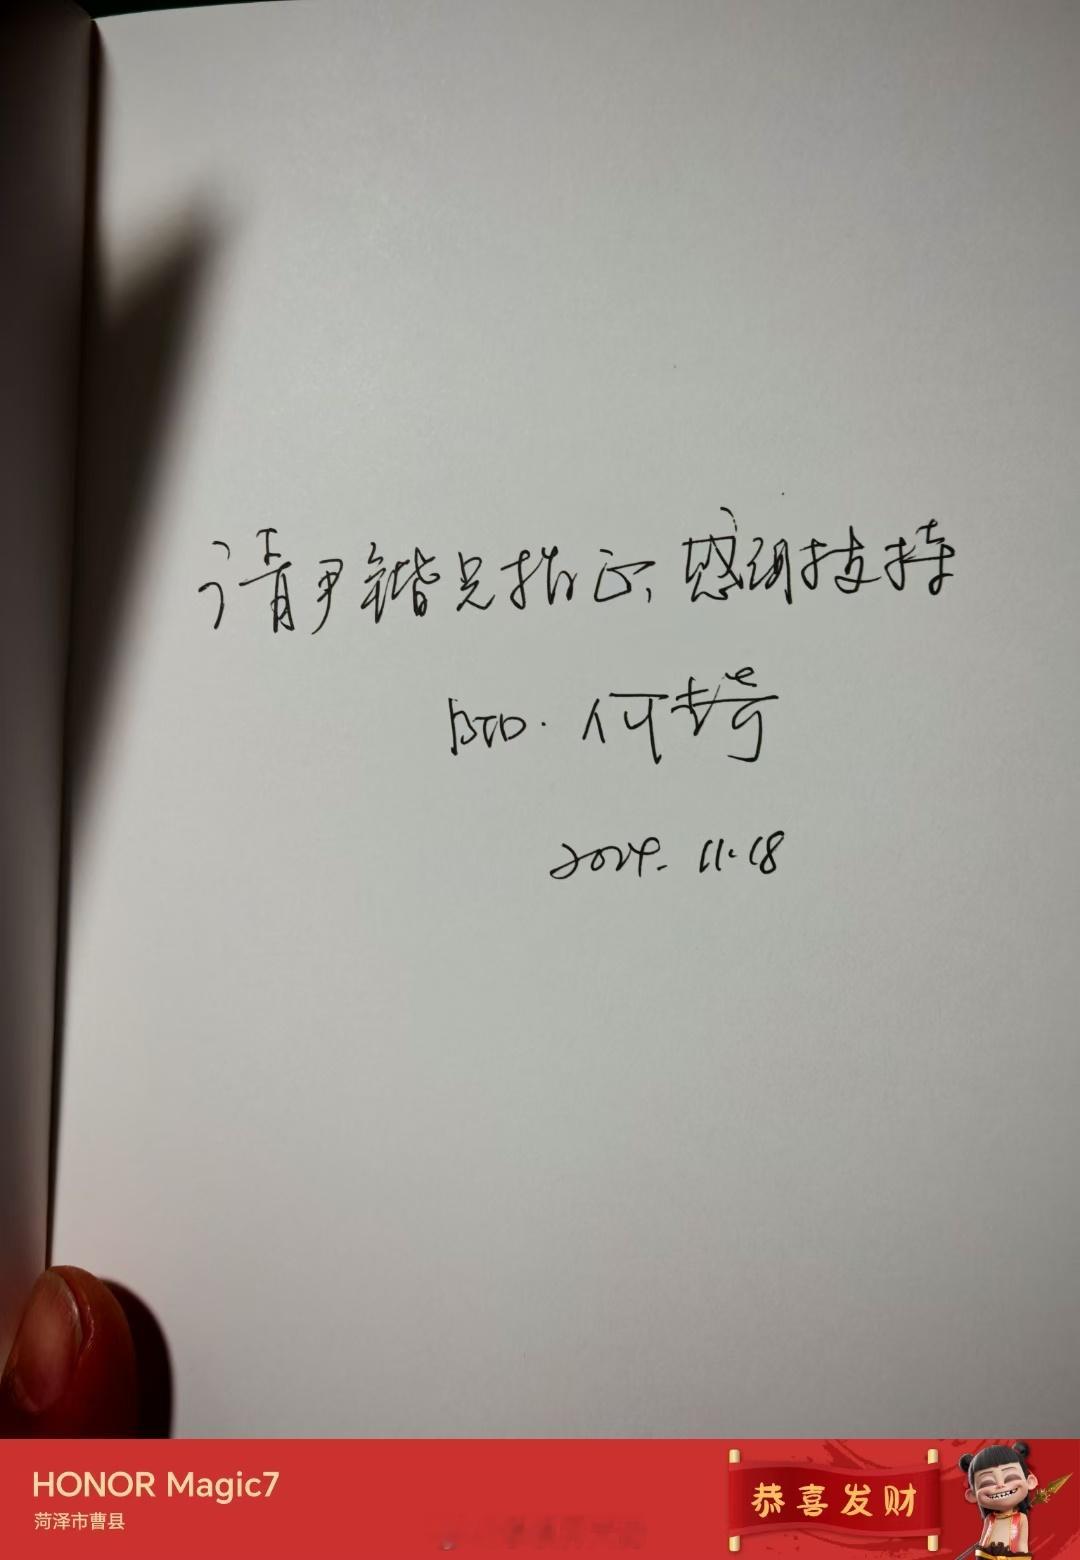 请尹锴兄指正,感谢支持
BTD. 何
2024. 11.18
HONOR Magic7
菏泽市曹县
恭喜发财